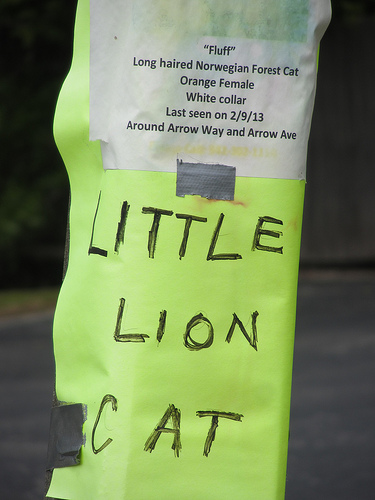 “Fluff”
Long haired Norwegian Forest Cat
Orange Female
White collar
Last seen on 2/9/13
Around Arrow Way and Arrow Ave
LITTLE
LION
CAT